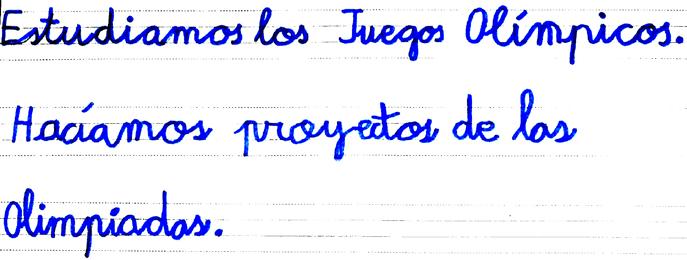 Estudiamos los Juegos Olímpicos.
Hacíamos proyectos de las
Olimpiadas.